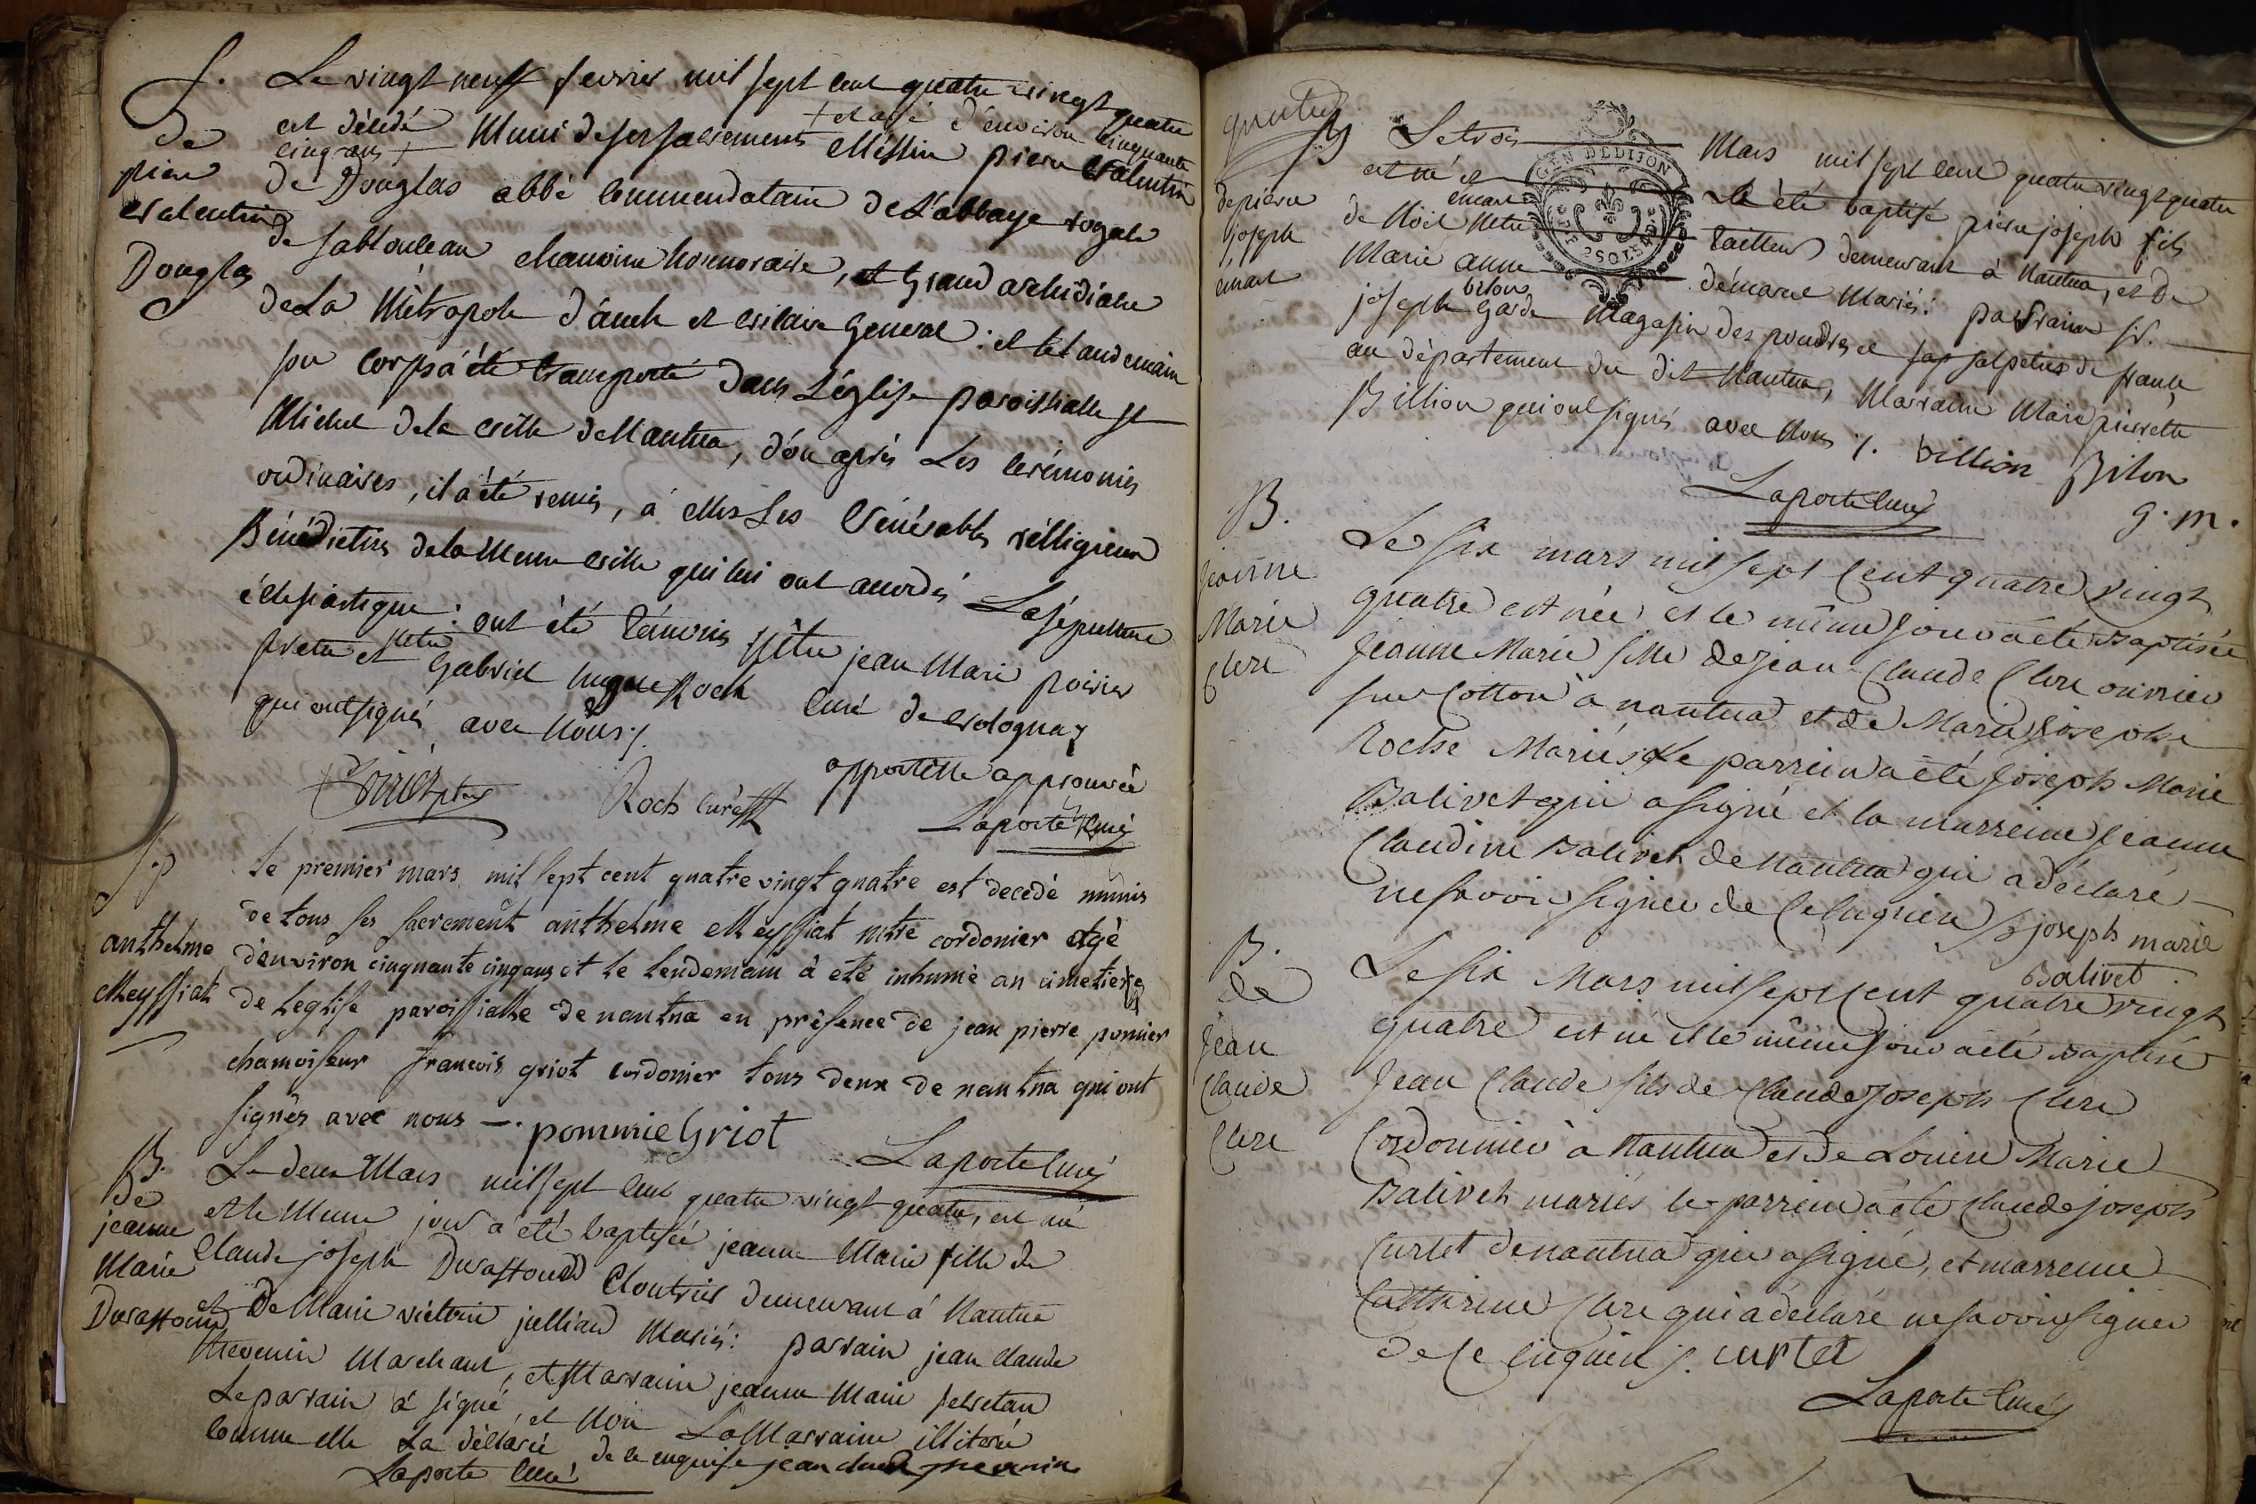 S.
de
pierre
valentin
Douglas
Le vingt neuff fevrier mil sept cent quatre vingt quatre
+ et agé d'environ cinquante
cinq ans +
est décédé Muni de ses sacrements Messire pierre valentin
de Douglas abbé Commendataire de L'abbaye royale
de chanoine honnoraire, et Grand archidiacre
de La Métropole d'auch et vicaire General : et le landemain
son corps à été transporté dans L'église paroissialle St
Michel de la ville de Nantua, d'ou après Les Cérémonies
ordinaires, il a été remis, à Mrs Les Vénérables rélligieux
Bénédictins de la Meme ville qui lui ont accordés La sépulture
éclésiastique : ont été témoins Mre jean Marie poirier
pretre et Mre Gabriel hugue Roch curé de volognay
qui ont signés avec Nous ./.
appostille approuvée
Poirier ptre Roch curé Laporte Curé
S.
anthelme
Meyssiat
le premier mars mil sept cent quatre vingt quatre est decedé munis
de tous ses sacrement anthelme Meyssiat mtre cordonier agé
d'environ cinquante cinq ans et le lendemain à eté inhumé au cimetiere
de L'eglise paroissialle de nantua en présence de jean pierre pomier
chamoiseur francois griot cordonier tous deux de nantua qui ont
signés avec nous —. pommie Griot
Laporte Curé
B.
de
jeanne
Marie
Durassond
Le deux Mars mil sept cent quatre vingt quatre, est né
et le Meme jour a été baptisée jeanne Marie fille de
Claude joseph Durassoud Cloutrier demeurant à Nantua
et De Marie victoire julliard Mariés : parrain jean claude
thevenin Marchant, et Marraine jeanne Marie
Le parrain à signé, et Non La Marraine illiterée
comme elle La déclaré de ce enquise jean claude thevenin
Laporte Curé
quatre
B
de pierre
joseph
émart
GEN DE DIJON
Le trois Mars mil sept cent quatre vingt quatre
est né et a été baptisé pierre joseph fils
de Noël émart Mtre tailleur demeurant à Nantua, et de
Marie anne démaret Mariés : parrain Sr.
joseph bilon Garde Magasin des poudres et salpetres de france
au département du dit Nantua, Marraine Marie pierrette
Billion qui ont signés avec Nous ./. billion Bilon
g. m.
Laporte Curé
B.
jeanne
Marie
Clerc
Le six mars mil sept Cent quatre vingt
quatre est née et le même jour a été Baptisée
Jeanne Marie fille de Jean Claude Clerc ouvrier
sur Cotton à nantua et de Marie Joseph
Roche Mariés Le parrein a été Joseph Marie
Balivet qui a signé et la marreine Jeanne
Claudine Balivet de Nantua qui a déclaré
ne savoir signer de Ce enquise joseph marie
Balivet
B.
de
Jean
Claude
Clerc
Le six Mars mil sept Cent quatre vingt
quatre est né et le même jour a été Baptisé
Jean Claude fils de Claude Joseph Clerc
Cordonnier à Nantua et de Louise Marie
Balivet mariés le parrein a été Claude joseph
Curtet de nantua qui a signé, et marreine
Catherine Clerc qui a déclaré ne savoir signer
de Ce enquise ./. curtet
Laporte Curé